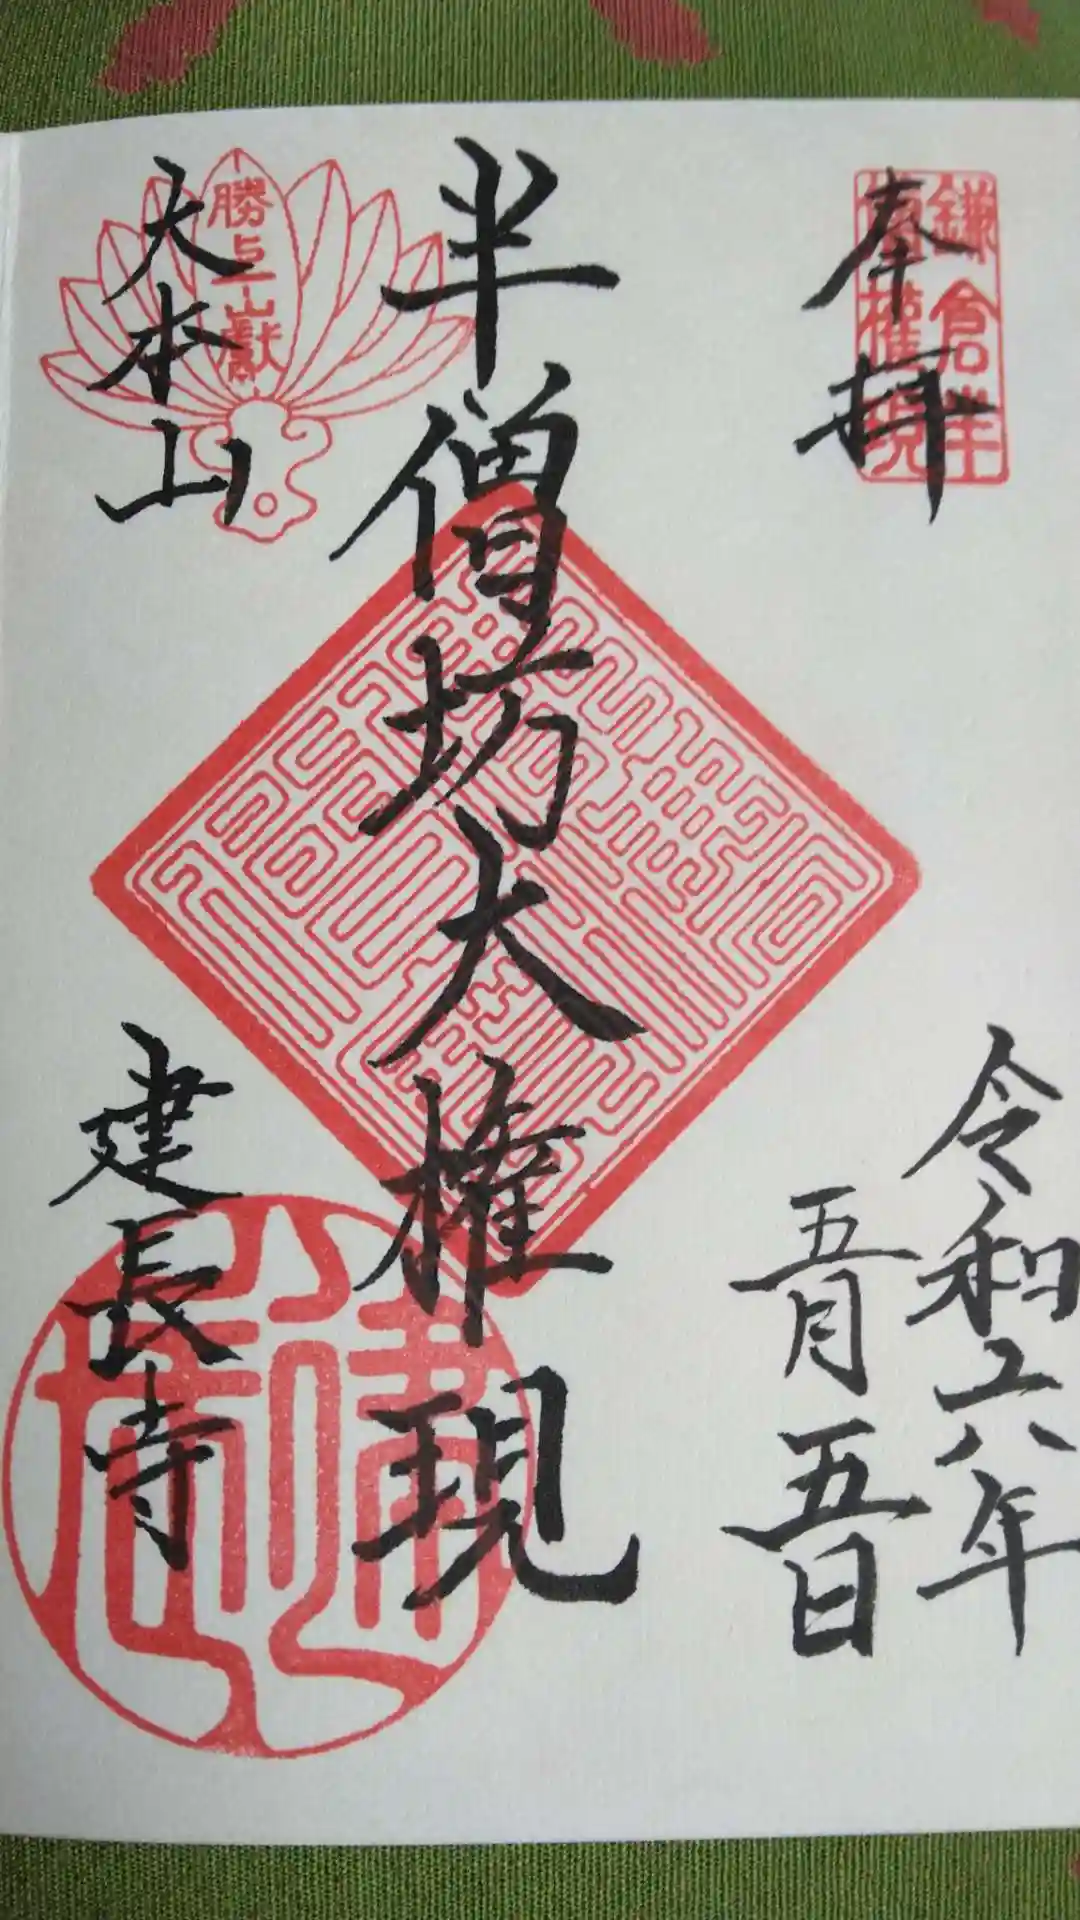 奉拝
鎌倉半
僧坊権現
令和六年
五月五日
半僧坊大権現
大本山
建長寺
勝上山獻